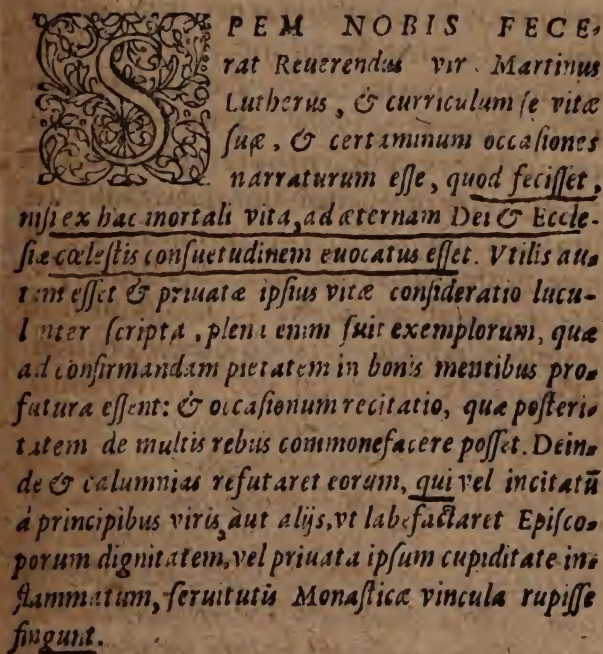 SPEM NOBIS FECE-
rat Reuerendus vir Martinus
Lutherus, & curriculum se vitæ
suæ, & certaminum occasiones
narraturum esse, quod fecisset,
nisi ex hac mortali vita, ad æternam Dei & Eccle-
siæ cœlestis consuetudinem euocatus esset. Vtilis au-
tem esset & priuatæ ipsius vitæ consideratio lucu-
lenter scripta, plena enim fuit exemplorum, quæ
ad confirmandam pietatem in bonis mentibus pro-
futura essent: & occasionum recitatio, quæ posteri-
tatem de multis rebus commonefacere posset. Dein-
de & calumnias refutaret eorum, qui vel incitatū
à principibus viris, aut alijs, vt labefactaret Episco-
porum dignitatem, vel priuata ipsum cupiditate in-
flammatum, seruitutis Monasticæ vincula rupisse
fingunt.